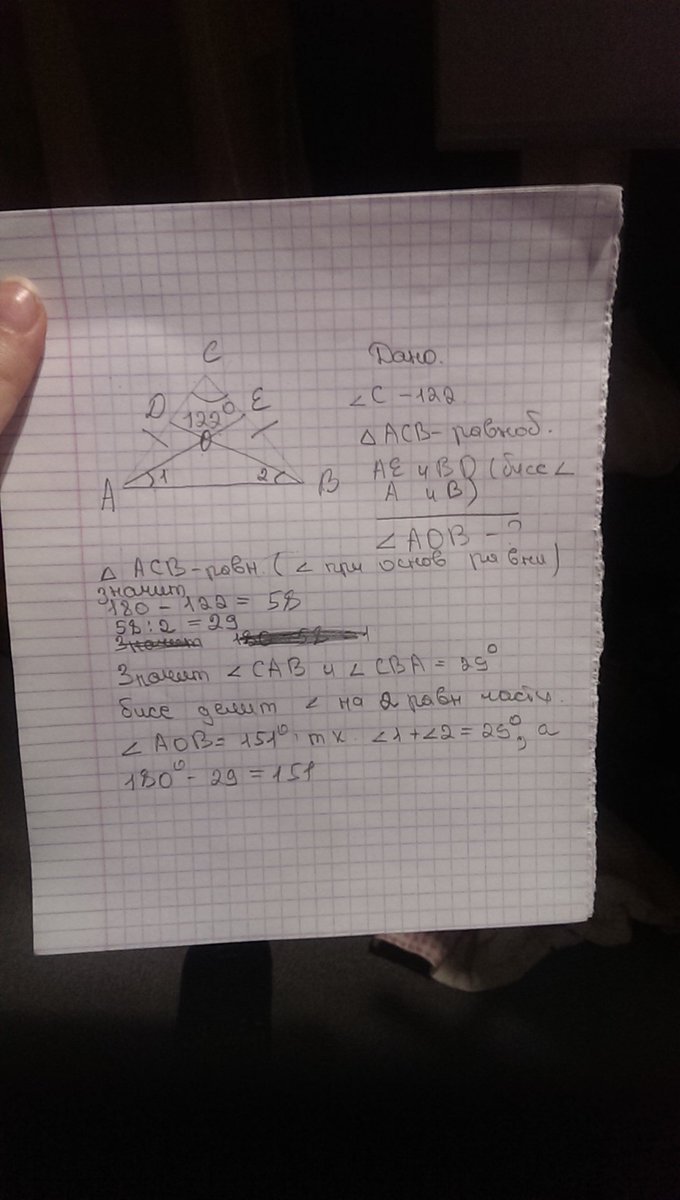 C
D
E
122°
O
A
1
2
B
Дано.
∠C - 122
△ ACB - равноб.
AE и BD (бисс ∠
A и B)
∠AOB - ?
△ ACB - равн. (∠ при основ равны)
значит
180 - 122 = 58
58 : 2 = 29
Значит
Значит ∠CAB и ∠CBA = 29°
бисс делит ∠ на 2 равн части.
∠ AOB = 151°, т к. ∠1 + ∠2 = 29°, а
180° - 29 = 151